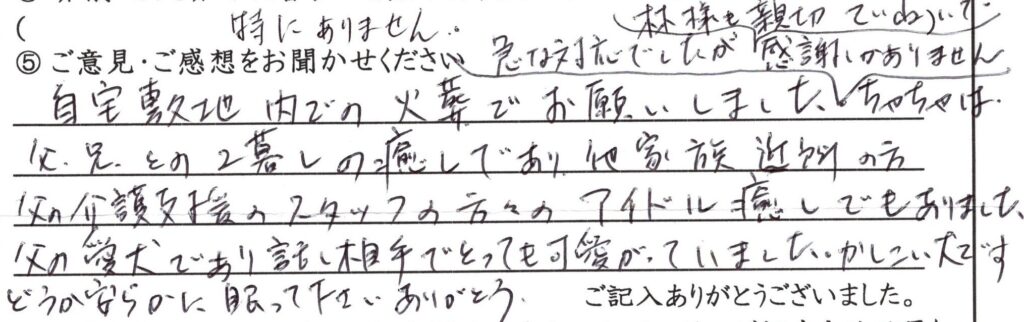 ( 特にありません.
林様も親切 ていねいで
急な対応でしたが 感謝しかありません
⑤ ご意見・ご感想をお聞かせください
自宅敷地内での火葬でお願いしました、ちゃちゃは.
父.兄.との2暮しの癒しであり 他家族 近所の方
父の介護支援のスタッフの方々のアイドル癒しでもありました、
父の愛犬であり話し相手でとっても可愛がっていました..かしこい犬です
どうか安らかに眠って下さい ありがとう.
ご記入ありがとうございました。